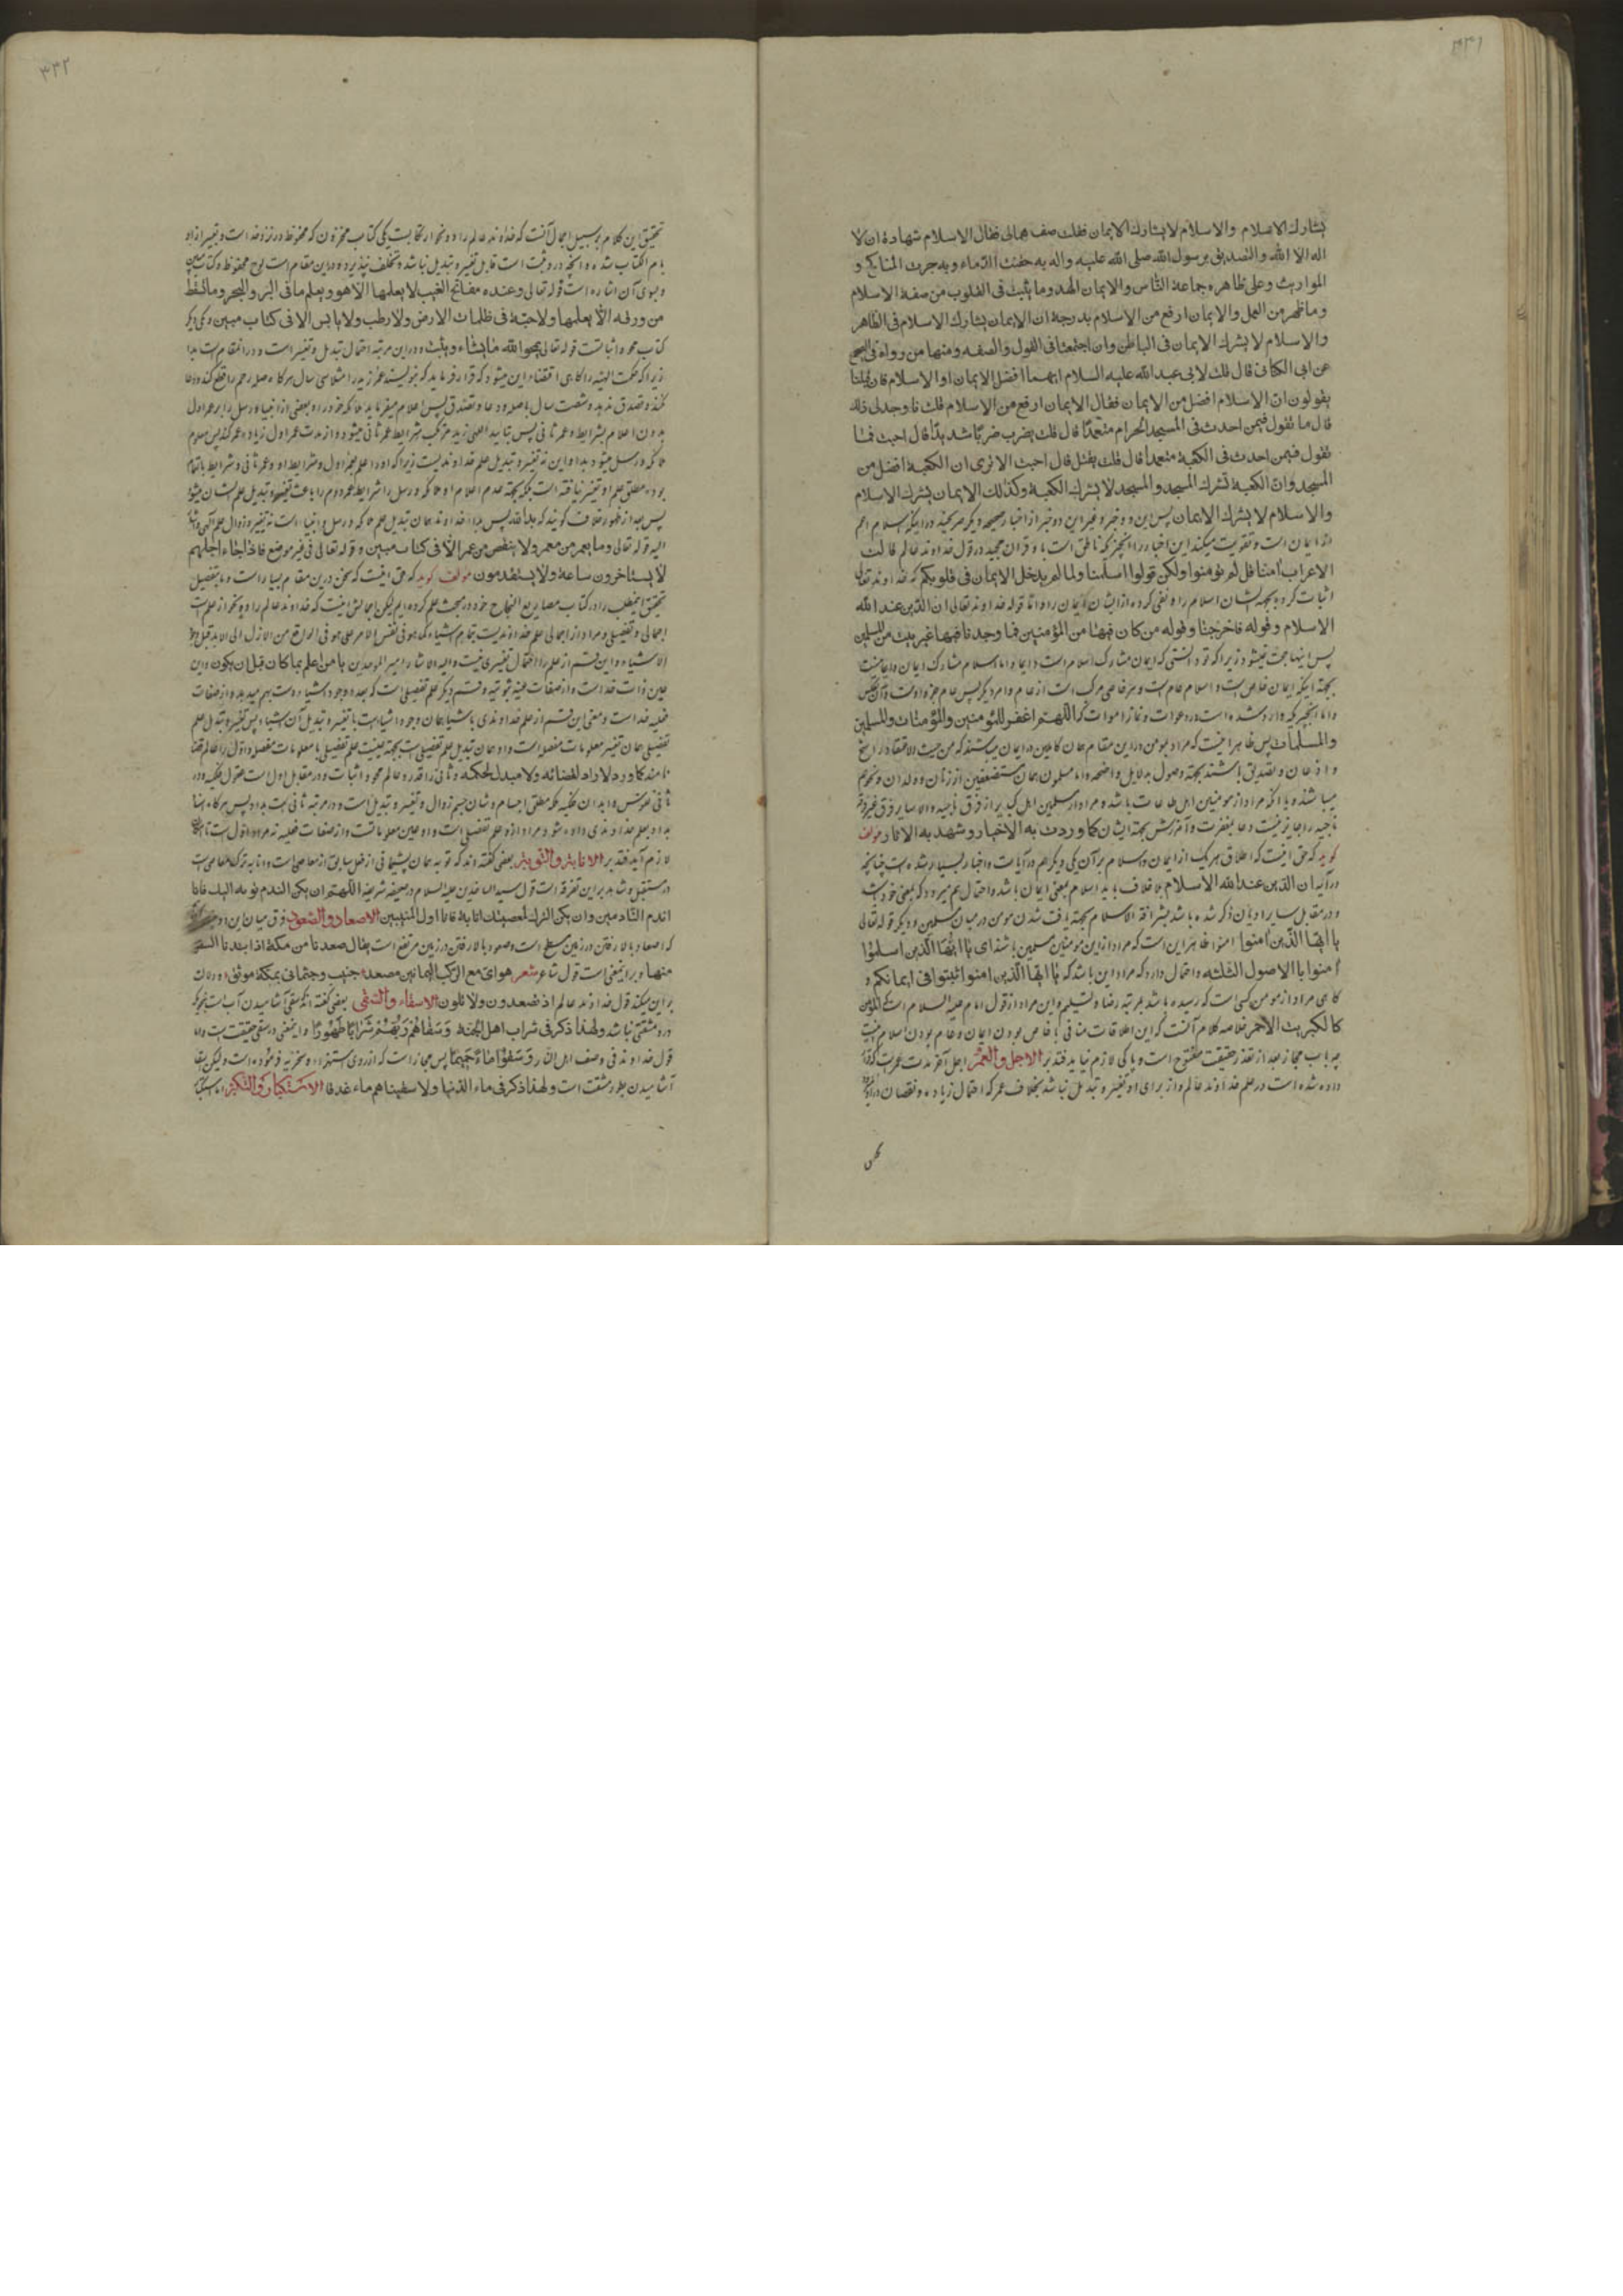 ٣٣١
يشارك الاسلام والاسلام لا يشارك الايمان فقلت صف همالى فقال الاسلام شهادة ان لا
اله الا الله والتصديق برسول الله صلى الله عليه واله به حقنت الدماء وبه جرت المناكح و
المواريث وعلى ظاهره جماعة الناس والايمان الهدى وما يثبت فى القلوب من صفة الاسلام
وما ظهر من العمل والايمان ارفع من الاسلام بدرجة ان الايمان يشارك الاسلام فى الظاهر
والاسلام لا يشرك الايمان فى الباطن وان اجتمعا فى القول والصفه ومنها من رواه فى الصحيح
عن ابى الكنانى قال قلت لابى عبد الله عليه السلام ايهما افضل الايمان او الاسلام فان قبلنا
يقولون ان الاسلام افضل من الايمان فقال الايمان ارفع من الاسلام قلت فاوجدنى ذلك
قال ما تقول فيمن احدث فى المسجد الحرام متعمدا قال قلت يضرب ضربا شديدا قال اصبت فما
تقول فيمن احدث فى الكعبة متعمدا قال قلت يقتل قال اصبت الا ترى ان الكعبة افضل من
المسجد وان الكعبة تشرك المسجد والمسجد لا يشرك الكعبة وكذلك الايمان يشرك الاسلام
والاسلام لا يشرك الايمان پس اين دو خبر و غير اين دو خبر از اخبار صحيحه ديگر صريحند در اينكه اسلام اعم
از ايمان است و تقويت ميكند اين اخبار را انچيز كه ناطق است باو قران مجيد در قول خداوند عالم قالت
الاعراب امنا قل لم تؤمنوا ولكن قولوا اسلمنا ولما يدخل الايمان فى قلوبكم كه خداوند تعالى
اثبات كرده بجهة ايشان اسلام را و نفى كرده از ايشان ايمان را و اما قوله خداوند تعالى ان الدين عند الله
الاسلام وقوله فاخرجنا وقوله من كان فيها من المؤمنين فما وجدنا فيها غير بيت من المسلمين
پس اينها حجت نميشود زيرا كه تو دانستى كه ايمان مشارك اسلام است دايما و اما اسلام مشارك ايمان دايما نيست
بجهة اينكه ايمان خاص است و اسلام عام است و هر خاصى مركب است از عام و امر ديگر پس عام جزء اوست
و اما انچيز كه وارد شده است در دعوات و نماز اموات كه اللهم اغفر للمؤمنين والمؤمنات والمسلمين
والمسلمات پس ظاهر اينست كه مراد بمومن در اين مقام همان كاملين در ايمان ميباشند كه من حيث الاعتقاد راسخ
و اذعان و تصديق باشند بجهة وصول بدلايل واضحه و اما مسلمون همان مستضعفين از زنان و ولدان و نحوهم
ميباشند و يا انكه مراد از مومنين اهل طاعات باشد و مراد از مسلمين اهل كباير از فرق ناجيه و الا ساير فرق غير
ناجيه را جايز نيست دعا بمغفرت و آمرزش بجهة ايشان كما وردت به الاخبار وشهد به الاثار مولف
گويد كه حق اينست كه اطلاق هر يك از ايمان و اسلام بر آن يكى ديگر هم در آيات و اخبار بسيار شده است چنانچه
در آيه ان الدين عند الله الاسلام بلا خلاف بايد اسلام بمعنى ايمان باشد و احتمال هم ميرود كه بمعنى خودش
و در مقابل ساير اديان ذكر شده باشد بشرافة الاسلام بجهة يافت شدن مومن در ميان مسلمين و ديگر قوله تعالى
يا ايها الذين امنوا امنوا ظاهر اين است كه مراد از اين مومنين مسلمين باشد اى يا ايها الذين اسلموا
امنوا بالاصول الثلثه و احتمال دارد كه مراد اين باشد كه يا ايها الذين امنوا اثبتوا فى ايمانكم و
كاهى مراد از مومن كسى است كه رسيده باشد بمرتبه رضا و تسليم و اين مراد از قول امام عليه السلام است المؤمن
كالكبريت الاحمر خلاصه كلام آنست كه اين اطلاقات منافى با خاص بودن ايمان و عام بودن اسلام نيست
چه باب مجاز بعد از تعذر حقيقت مفتوح است و باكى لازم نيايد فتدبر الاجل والعمر اجل آخر مدت عمر است كه قرار
داده شده است در علم خداوند عالم و از براى او تغيير و تبديل نباشد بخلاف عمر كه احتمال زياده و نقصان دارد
٣٣٢
تحقيق اين كلام بر سبيل اجمال آنست كه خداوند عالم را دو نحو از كتابست يكى كتاب مخزون كه محفوظ در نزد خداست و تعبير از او
بام الكتاب شده و انچه در او ثبت است قابل تغيير و تبديل نباشد و تخلف نپذيرد و در اين مقام است لوح محفوظ و كتاب مبين
و بسوى آن اشاره است قوله تعالى وعنده مفاتح الغيب لا يعلمها الا هو ويعلم ما فى البر والبحر وما تسقط
من ورقة الا يعلمها ولا حبة فى ظلمات الارض ولا رطب ولا يابس الا فى كتاب مبين و يكى ديگر
كتاب محو و اثباتست قوله تعالى يمحوا الله ما يشاء ويثبت و در اين مرتبه احتمال تبديل و تغيير است و در انمقام است بدا
زيرا كه حكمت الهيه را كاهى اقتضاء اين ميشود كه قرار فرمايد كه بنويسند عمر زيد را مثلا سى سال هر كاه صله رحم را قطع كند و دعا
نكند و تصدق ندهد و شصت سال با صله و دعا و تصدق پس اعلام ميفرمايد ملائكه خود را و بعضى از انبيا و رسل را بر عمر اول
بدون اعلام بشرايط و عمر ثانى پس بتاييد الهى زيد مرتكب شرايط عمر ثانى ميشود و از مدت عمر اول زياده عمر كند پس معلوم
ملائكه و رسل ميشود بدا و اين نه تغيير و تبديل علم خداونديست زيرا كه او را علم بعمر اول و شرايط او و عمر ثانى و شرايط بالتمام
بوده مطلق علم او تغيير نيافته است بلكه بجهة عدم اعلام او ملائكه و رسل را شرايط عمر دوم را باعث تغيير و تبديل علم ايشان ميشود
پس بعد از ظهور خلاف گويند كه بدا لله پس بدا خداوند همان تبديل علم ملائكه و رسل و انبياء است نه تغيير و زوال علم الهى
اليه قوله تعالى وما يعمر من معمر ولا ينقص من عمره الا فى كتاب مبين و قوله تعالى فى غير موضع فاذا جاء اجلهم
لا يستاخرون ساعة ولا يستقدمون مولف گويد كه حق اينست كه سخن در اين مقام بسيار است و ما بتفصيل
تحقيق اينمطلب را در كتاب مصاريع النجاح خود در مبحث علم كرده ايم ليكن اجمالش اينست كه خداوند عالم را دو نحو از علم است
اجمالى و تفصيلى و مراد از اجمالى علم خداونديست بتمام اشياء كما هو فى نفس الامر على هو فى الواقع من الازل الى الابد قبل وجود
الاشياء و اين قسم از علم را احتمال تغييرى نيست و اليه الاشاره امير الموحدين يا من اعلم بما كان قبل ان يكون و اين
عين ذات خداست و از صفات عينيه ثبوتيه و قسم ديگر علم تفصيلى است كه بعد وجود اشياء دست بهم ميدهد و از صفات
فعليه خداست و معنى اين قسم از علم خداوندى باشياء همان وجود اشياء است با تغيير و تبديل آن اشياء پس تغيير و تبديل علم
تفصيلى همان تغيير معلومات مفصله است و او همان تبديل علم تفصيلى است بجهة عينيت علم تفصيلى با معلومات مفصله و اول را عالم قضا
نامند كما ورد لا راد لقضائه ولا مبدل لحكمه و ثانى را قدر و عالم محو و اثبات و در مقابل اول است عقول فلكيه و در
ثانى نفوس و ابدان فلكيه بلكه مطلق اجسام و شان جسم زوال و تغيير و تبديل است و در مرتبه ثانى است بدا و پس هر كاه اسناد
بدا و بعلم خداوندى داده شود مراد از او علم تفصيلى است و او عين معلوماتست و از صفات فعليه نه مراد اول است تا نقصان
لازم آيد فتدبر الانابة والتوبة بعضى گفته اند كه توبه همان پشيمانى از فعل سابق از معاصى است و انابه ترك معاصى است
در مستقبل و شاهد بر اين تفرقه است قول سيد الساجدين عليه السلام در صحيفه شريفه اللهم ان يكن الندم توبة اليك فانا
اندم النادمين وان يكن الترك لمعصيتك انابة فانا اول المنيبين الاصعاد والصعود فرق ميان اين دو
كه اصعاد بالا رفتن در زمين مسطح است و صعود بالا رفتن در زمين مرتفع است يقال صعدنا من مكة اذا ابتدنا السفر
منها و بر اينمعنى است قول شاعر شعر هواى مع الركب اليمانين مصعد جنيب وجثمانى بمكة موثق و دلالت
بر اين ميكند قول خداوند عالم اذ تصعدون ولا تلون الاسقاء والسقى بعضى گفته اند كه سقى آشاميدن آب است بنحوى كه
در او مشقتى نباشد ولهذا ذكر فى شراب اهل الجنة وسقاهم ربهم شرابا طهورا و اينمعنى در سقى حقيقت است و اما
قول خداوند فى وصف اهل النار وسقوا ماء حميما پس مجاز است كه از روى استهزاء و سخريه فرموده است و ليكن اسقاء
آشاميدن بطور مشقت است ولهذا ذكر فى ماء الدنيا ولاسقيناهم ماء غدقا الاستكبار والتكبر